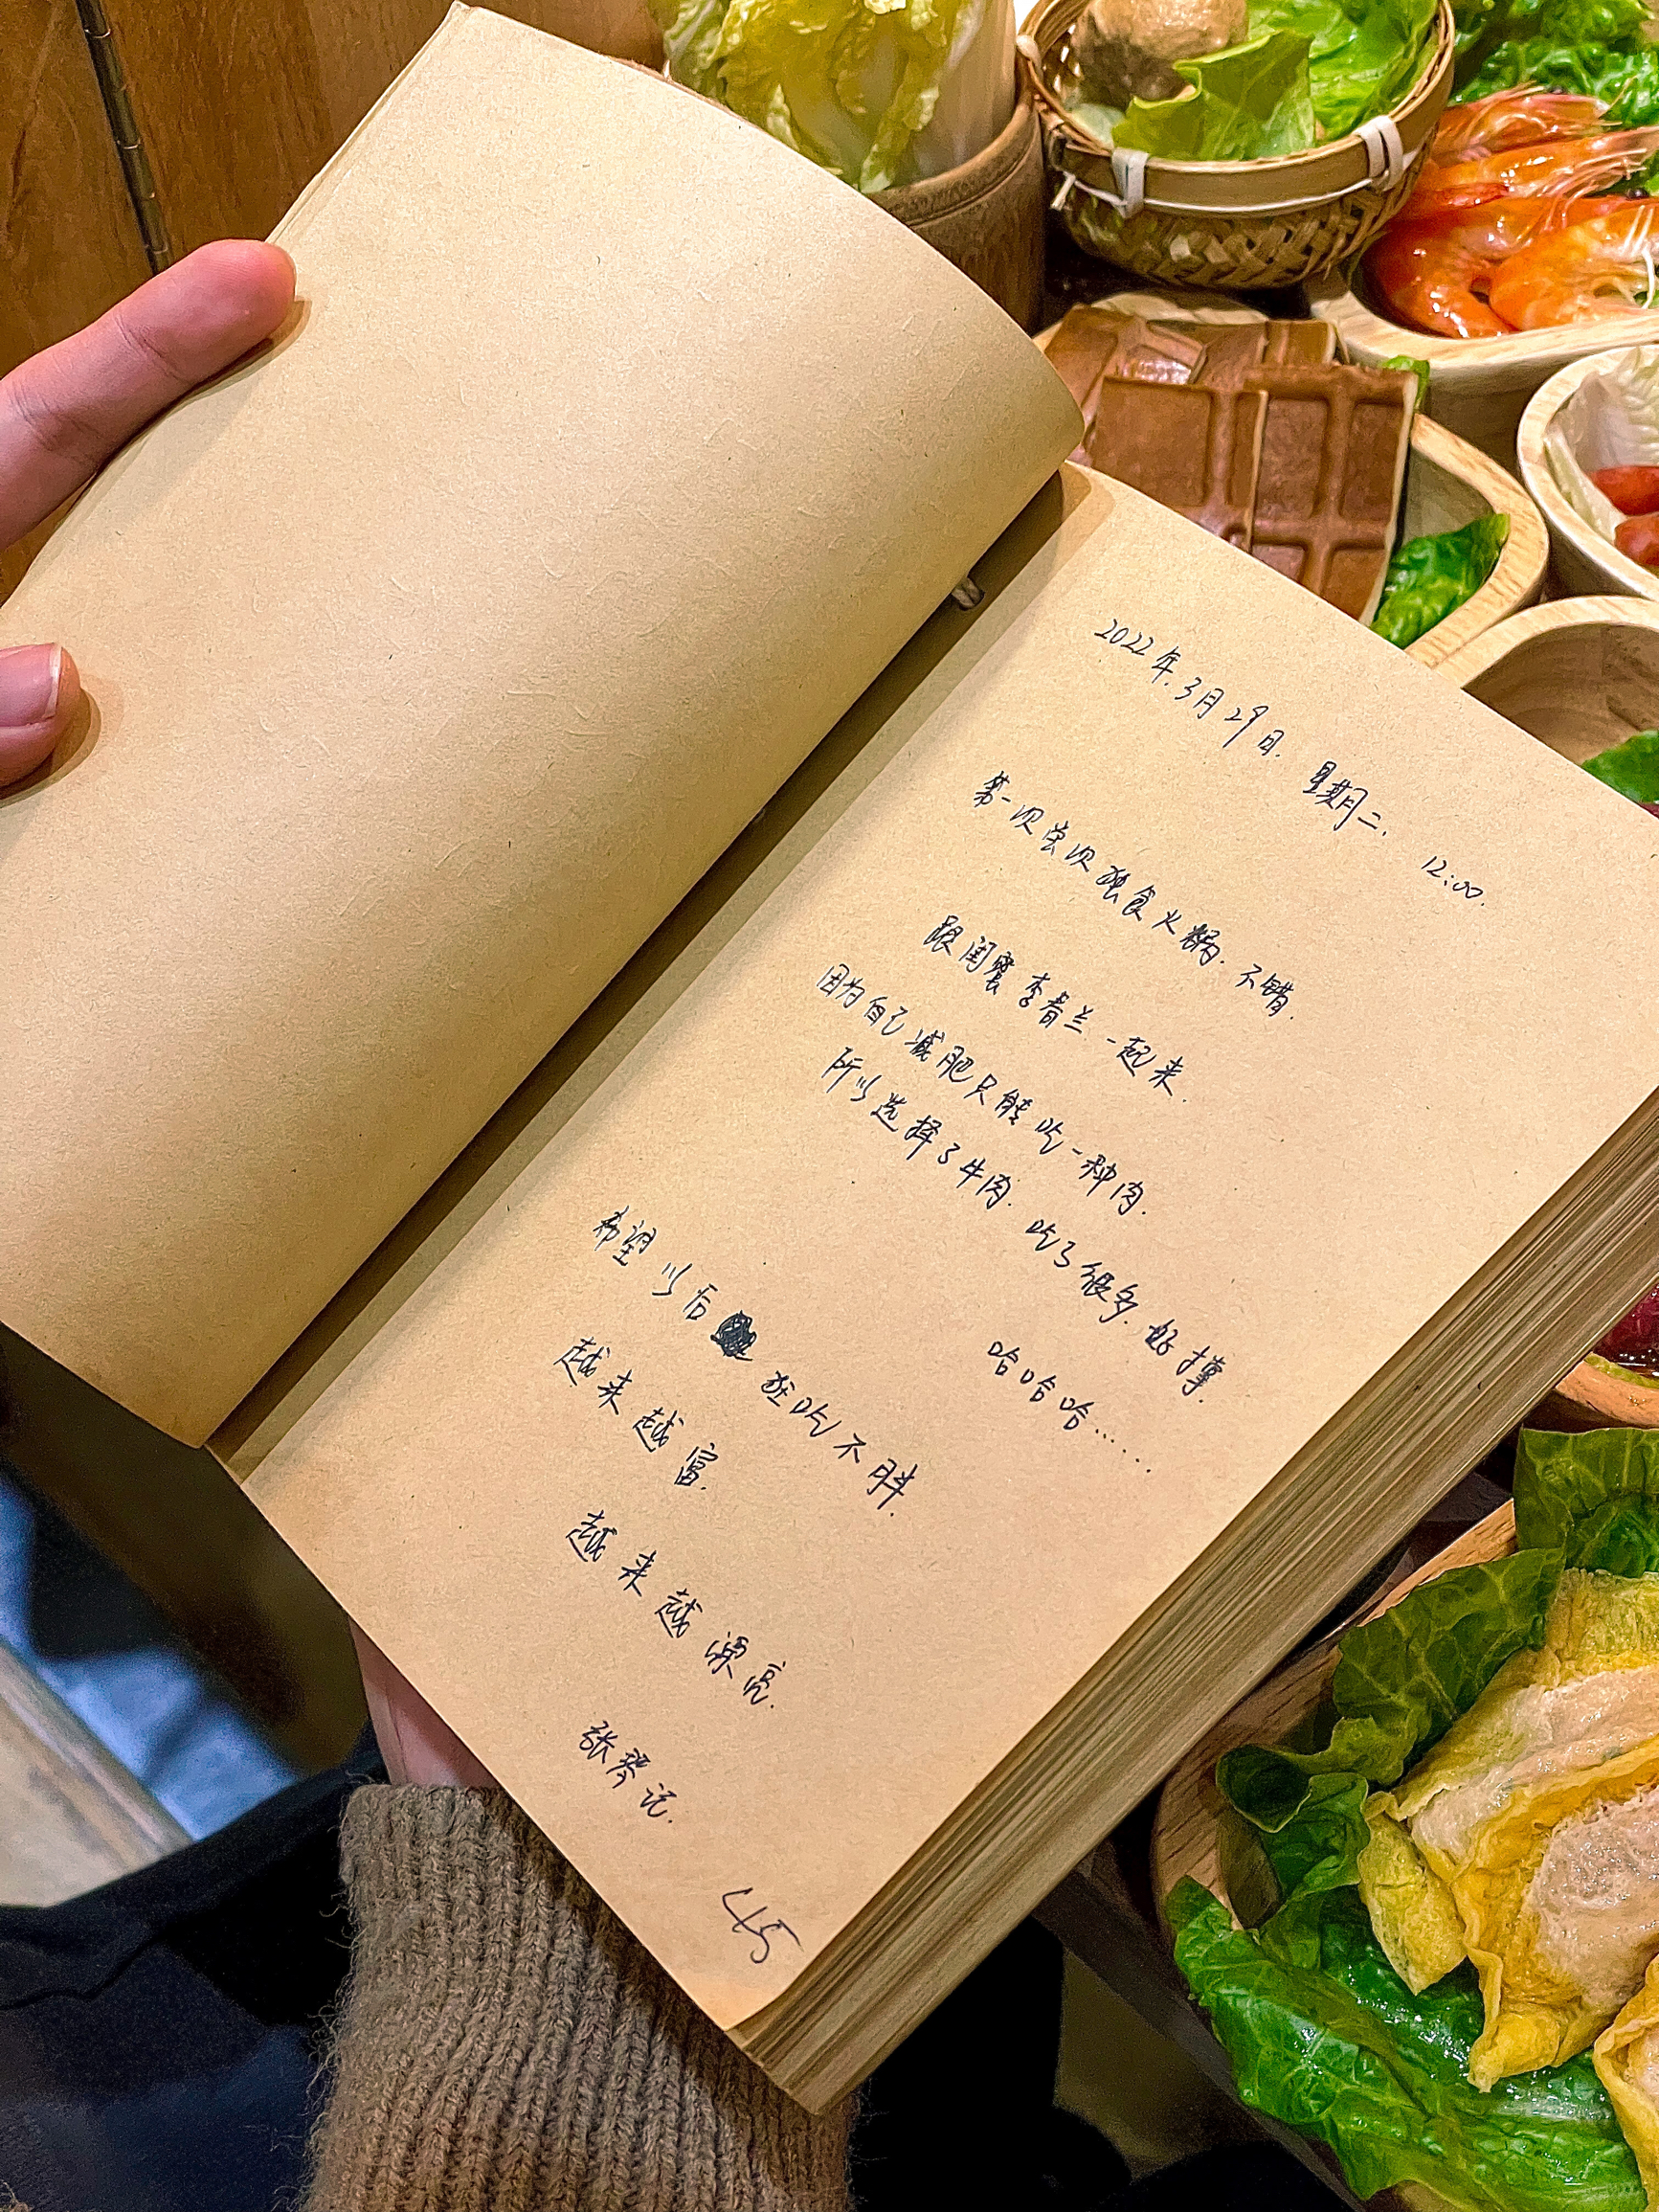 2022年.3月29日. 星期二. 12:00.
第一次尝次独食火锅. 不错.
跟闺蜜李春兰一起来.
因为自己减肥只能吃一种肉.
所以选择了牛肉. 吃了很多. 好撑.
哈哈哈……
希望以后 狂吃不胖.
越来越富.
越来越漂亮.
张琴记.
45